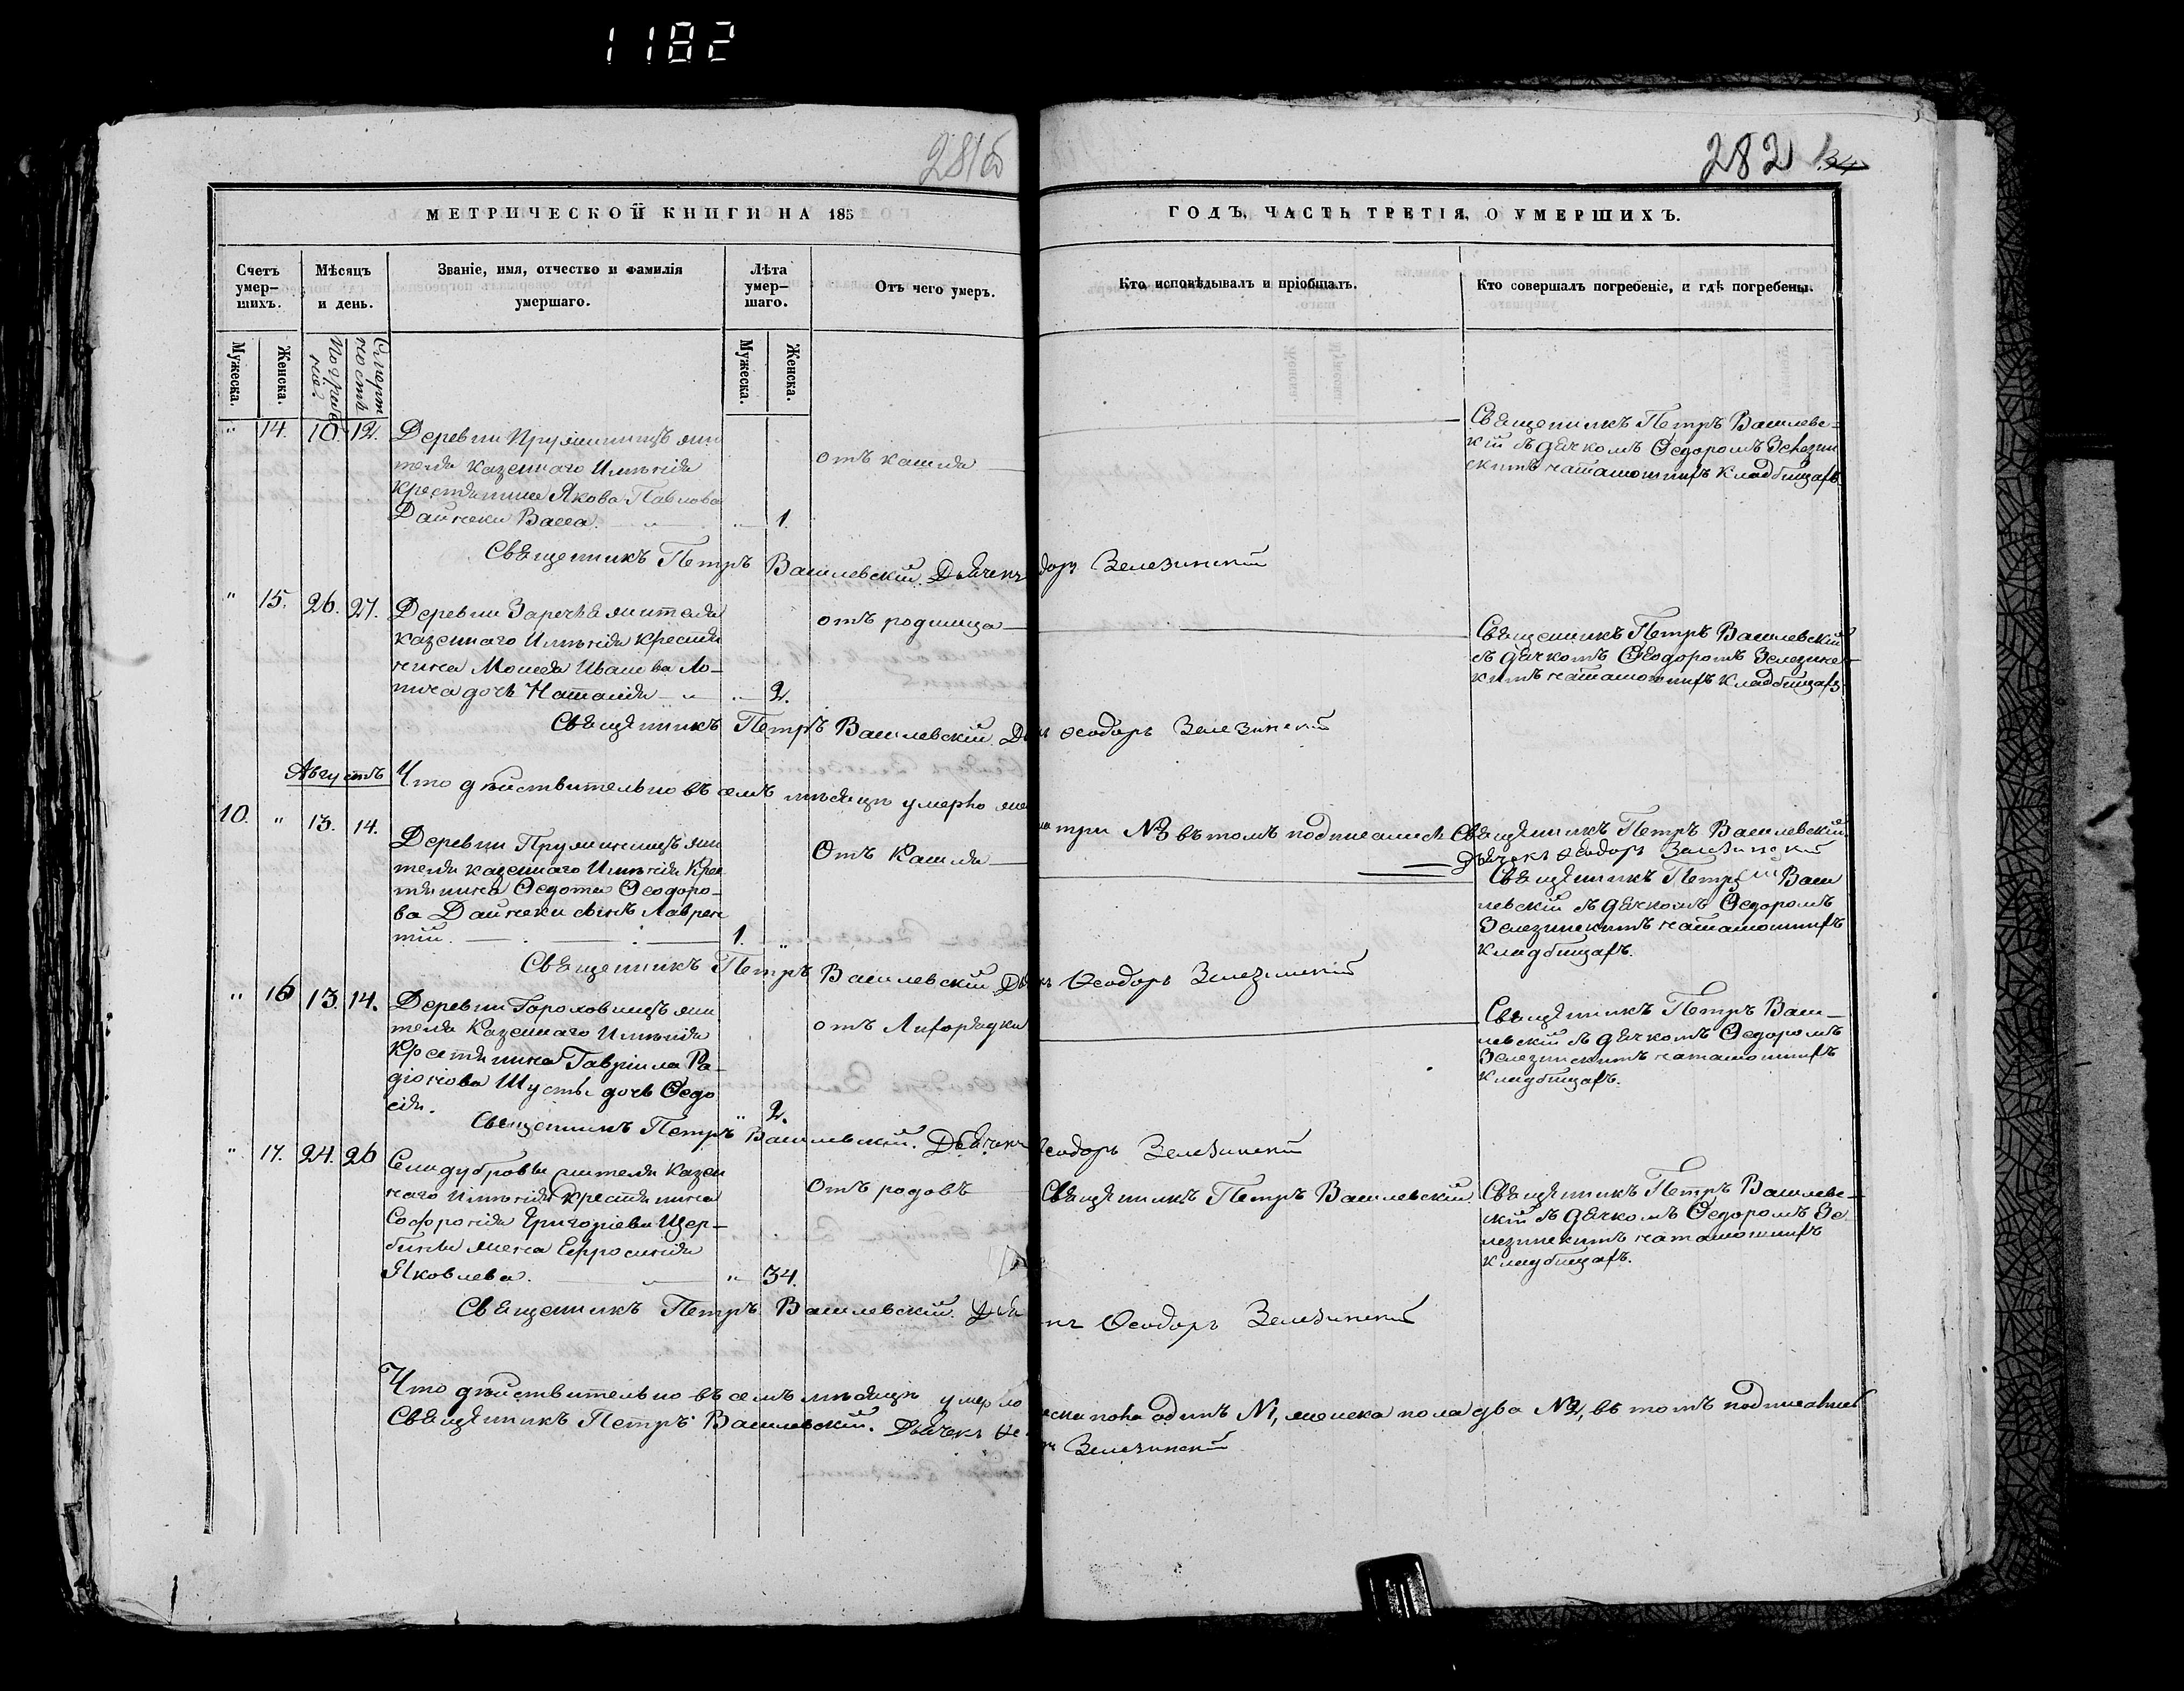 1182
281б
282
МЕТРИЧЕСКОЙ КНИГИ НА 185
ГОДЪ, ЧАСТЬ ТРЕТІЯ, О УМЕРШИХЪ.
Счетъ умер-
шихъ.
Мѣсяцъ
и день.
Званіе, имя, отчество и фамилія
умершаго.
Лѣта
умер-
шаго.
Отъ чего умеръ.
Кто исповѣдывалъ и пріобщалъ.
Кто совершалъ погребеніе, и гдѣ погребены.
Мужеска.
Женска.
Мужеска.
Женска.
" 14. 10. 12.
теля казеннаго Имѣнія
Якова Павлова
Дайнеки Васса. " 1.
отъ кашля
Священникъ Петръ Василевс-
кій съ дячкомъ Ѳедоромъ Зелезин
скимъ на тамошнихъ кладбищахъ.
Священникъ Петръ Василевскій. Дьячекъ
доръ Зелезинскій
" 15. 26. 27.
Деревни Заречья жителя
казеннаго Имѣнія крестья
нина Моисея Иванова Ло-
пича дочь Наталія " 2.
отъ родимца
Священникъ Петръ Василевскій
съ дячкомъ Ѳеодоромъ Зелезинс-
кимъ на тамошнихъ кладбищахъ
Священникъ Петръ Василевскій.
Ѳеодоръ Зелезинскій
Августъ
Что дѣйствительно въ семъ мѣсяцѣ умерло
три №3 въ томъ подписались Священникъ Петръ Василевскій
Дьячекъ Ѳеодоръ Зелезинскій
10. " 13. 14.
теля казеннаго Имѣнія Крес
тьянина Ѳедота Ѳеодоро-
ва Дайнеки сынъ Лаврен
тій. 1. "
Отъ Кашля
Священникъ Петръ Васи
левскій съ дячкомъ Ѳедоромъ
Зелезинскимъ на тамошнихъ
кладбищахъ.
Священникъ Петръ Василевскій
Ѳеодоръ Зелезинскій
" 16 13. 14.
теля Казеннаго Имѣнія
Крестьянина Гавріила Ра-
діонова Шустъ дочь Ѳедо
сія. " 2.
отъ Лихорадки
Священникъ Петръ Васи-
левскій съ дячкомъ Ѳедоромъ
Зелезинскимъ на тамошнихъ
кладбищахъ.
Священникъ Петръ Василевскій. Дьячекъ
Ѳеодоръ Зелезинскій
" 17. 24. 26
Села дубровы жителя Казен
наго Имѣнія Крестьянина
Софронія Григоріева Щер-
бины жена Евфросинія
Яковлева. " 34.
Отъ родовъ
Священникъ Петръ Василевскій
Священникъ Петръ Василевс-
кій съ дячкомъ Ѳедоромъ Зе-
лезинскимъ на тамошнихъ
кладбищахъ.
Священникъ Петръ Василевскій.
Ѳеодоръ Зелезинскій
Что дѣйствительно въ семъ мѣсяцѣ умерло
пола одинъ №1, женска пола два №2, въ томъ подписались
Священникъ Петръ Василевскій. Дьячекъ
Зелезинскій